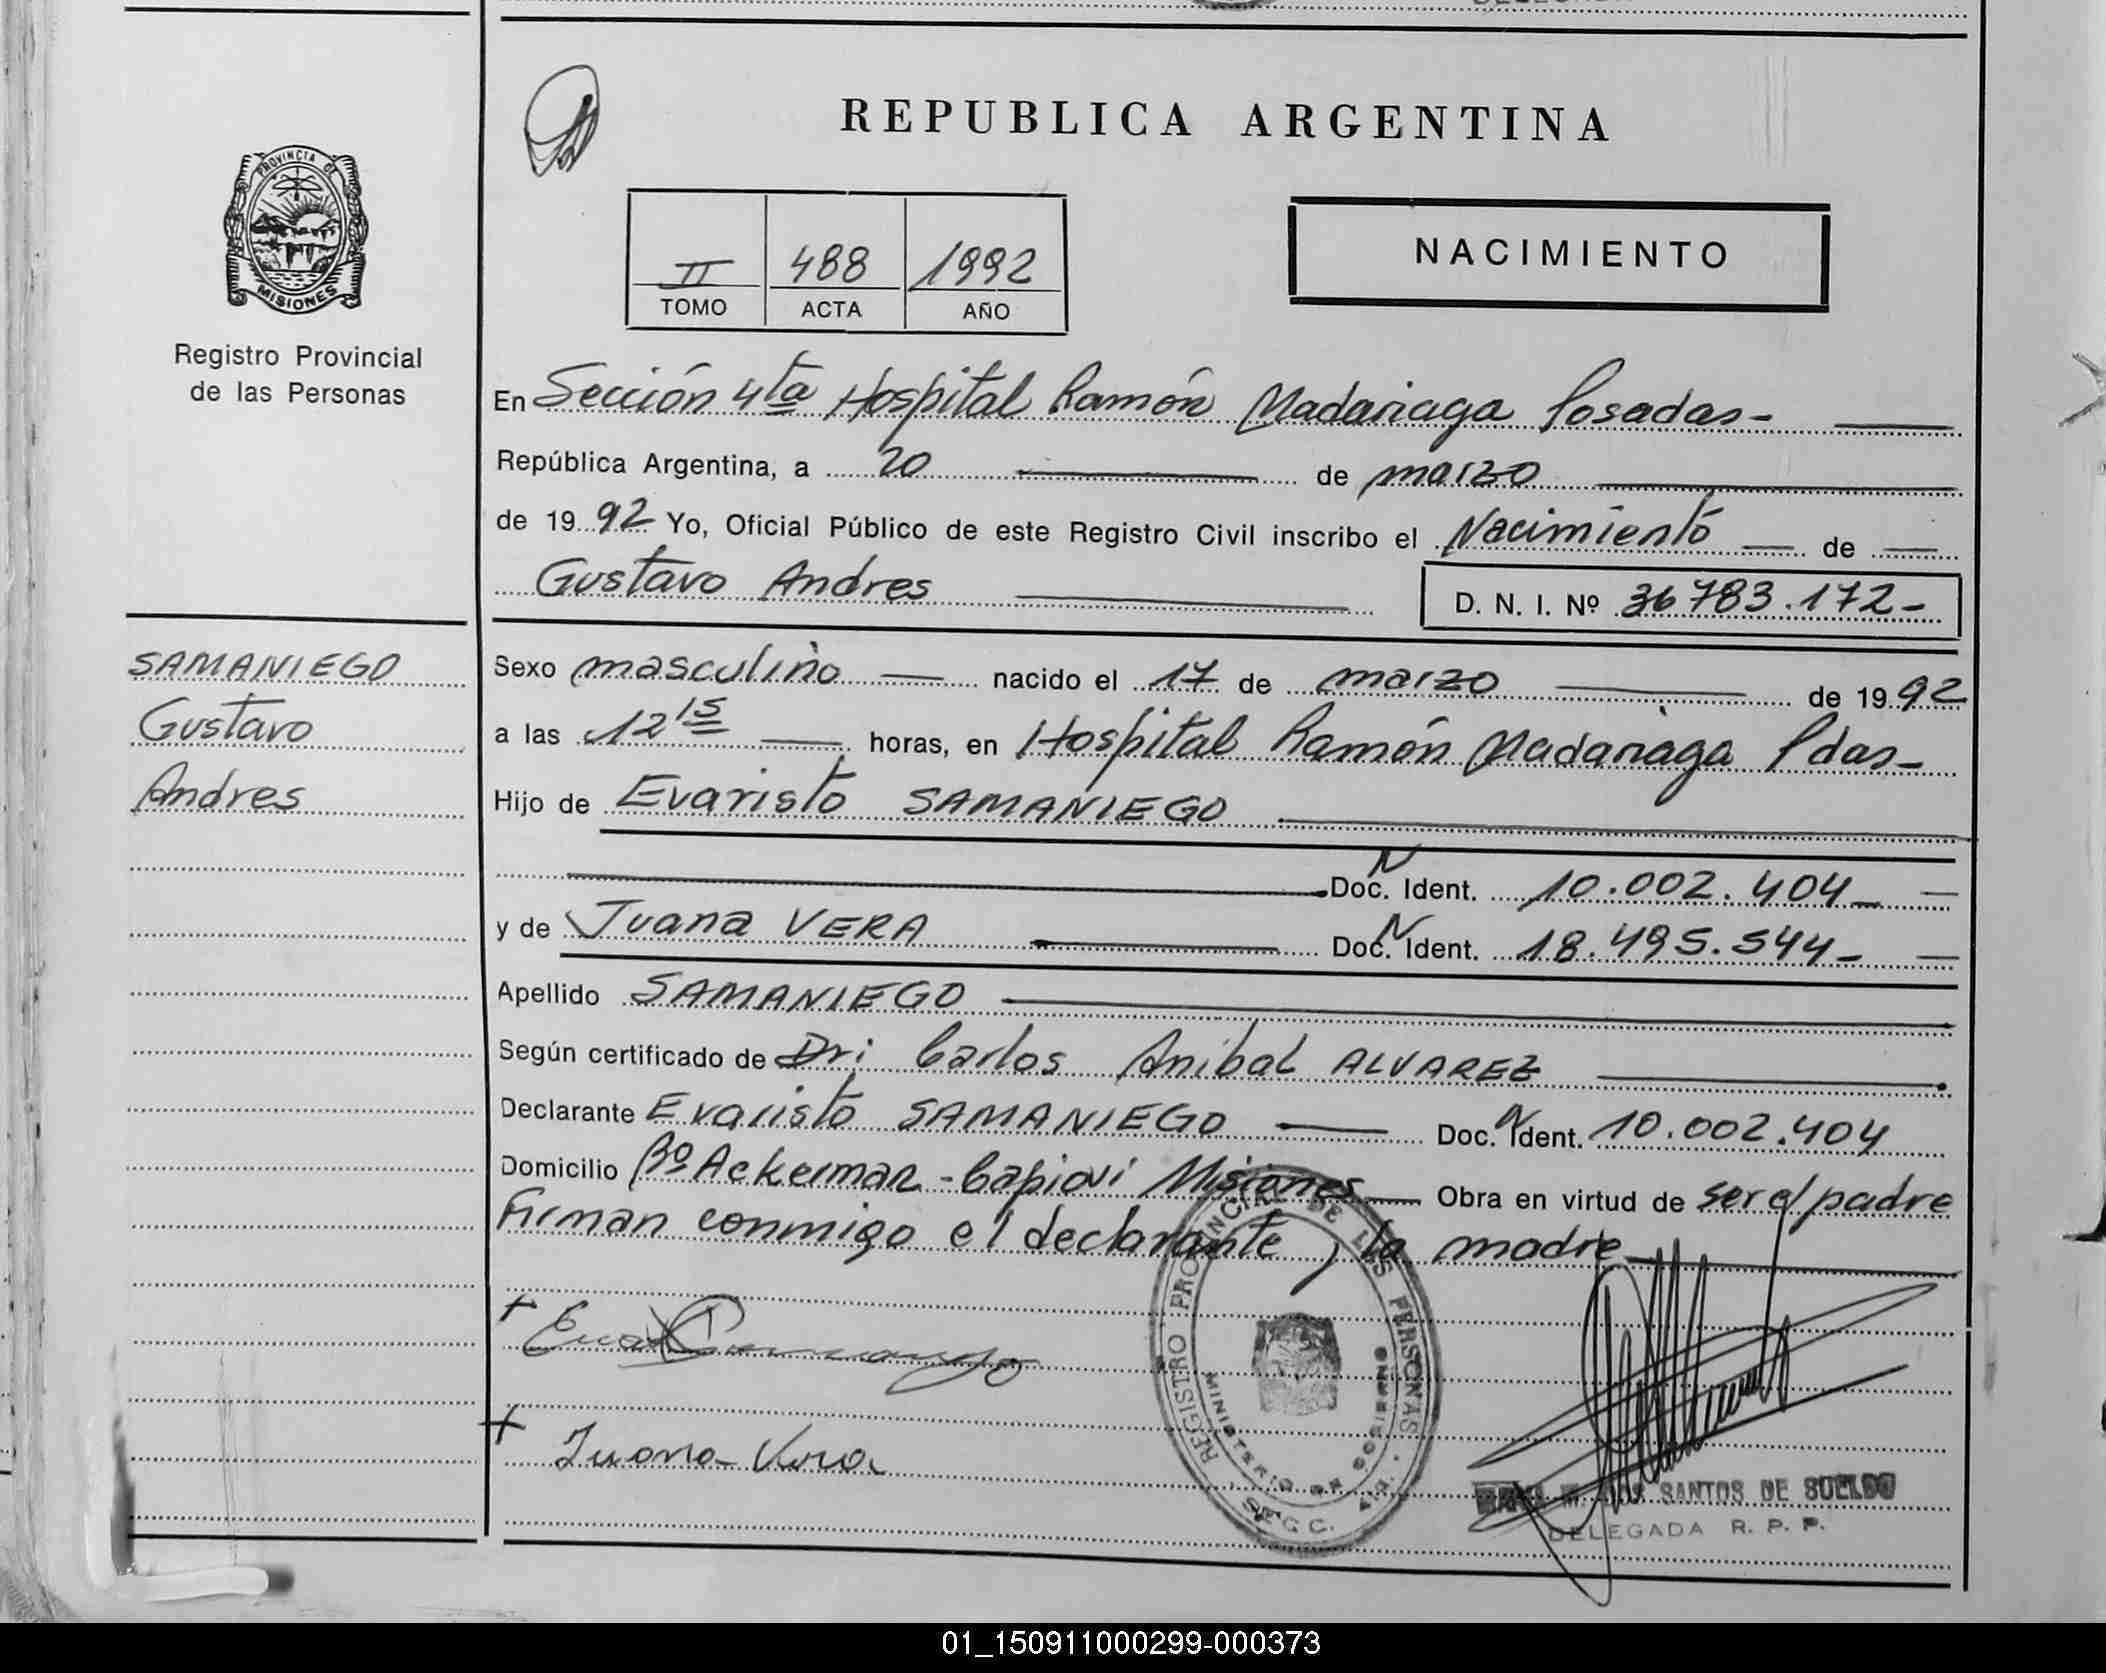 REPUBLICA ARGENTINA
PROVINCIA DE
MISIONES
Registro Provincial
de las Personas
II 488 1992
TOMO ACTA AÑO
NACIMIENTO
En Sección 4ta Hospital Ramón Madariaga Posadas-
República Argentina, a 20 de marzo
de 1992 Yo, Oficial Público de este Registro Civil inscribo el Nacimiento de
Gustavo Andres D. N. I. Nº 36783.172-
SAMANIEGO
Gustavo
Andres
Sexo masculino nacido el 17 de marzo de 1992
a las 12 15 horas, en Hospital Ramón Madariaga Pdas-
Hijo de Evaristo SAMANIEGO
N
Doc. Ident. 10.002.404-
y de Juana VERA Doc. N Ident. 18.495.544-
Apellido SAMANIEGO
Según certificado de Dr: Carlos Anibal ALVAREZ
Declarante Evaristo SAMANIEGO Doc. N Ident. 10.002.404
Domicilio Bº Ackerman - Capiovi Misiones Obra en virtud de ser el padre
Firman conmigo el declarante, la madre
Juana Vera
REGISTRO PROVINCIAL DE LAS PERSONAS
MINISTERIO DE GOBIERNO
SANTOS DE SUELDO
DELEGADA R. P. P.
01_150911000299-000373